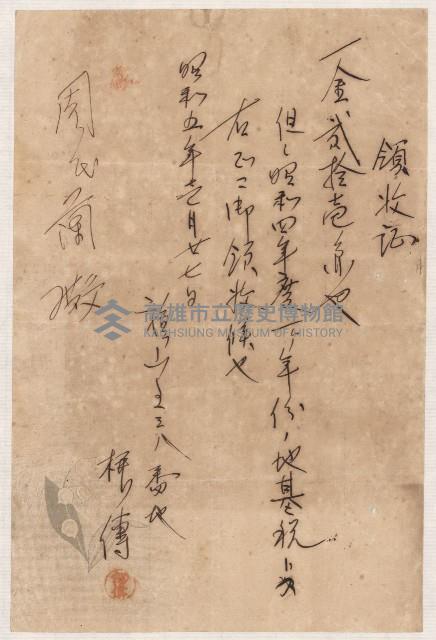 領收証
一金貳拾壱京也
但シ昭和四年度一ヶ年份ノ地基税トシテ
右正ニ御領收候也
昭和五年壱月廿七日
山主三八番地
傳
周氏蘭 殿
高雄市立歷史博物館
KAOHSIUNG MUSEUM OF HISTORY